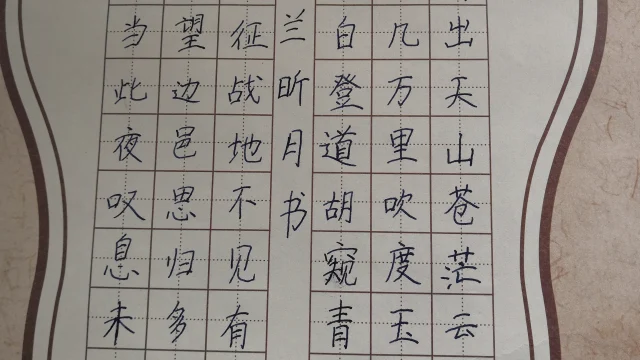 出天山苍茫云
几万里吹度玉
白登道胡窥青
兰昕月书
征战地不见有
望边邑思归多
当此夜叹息未